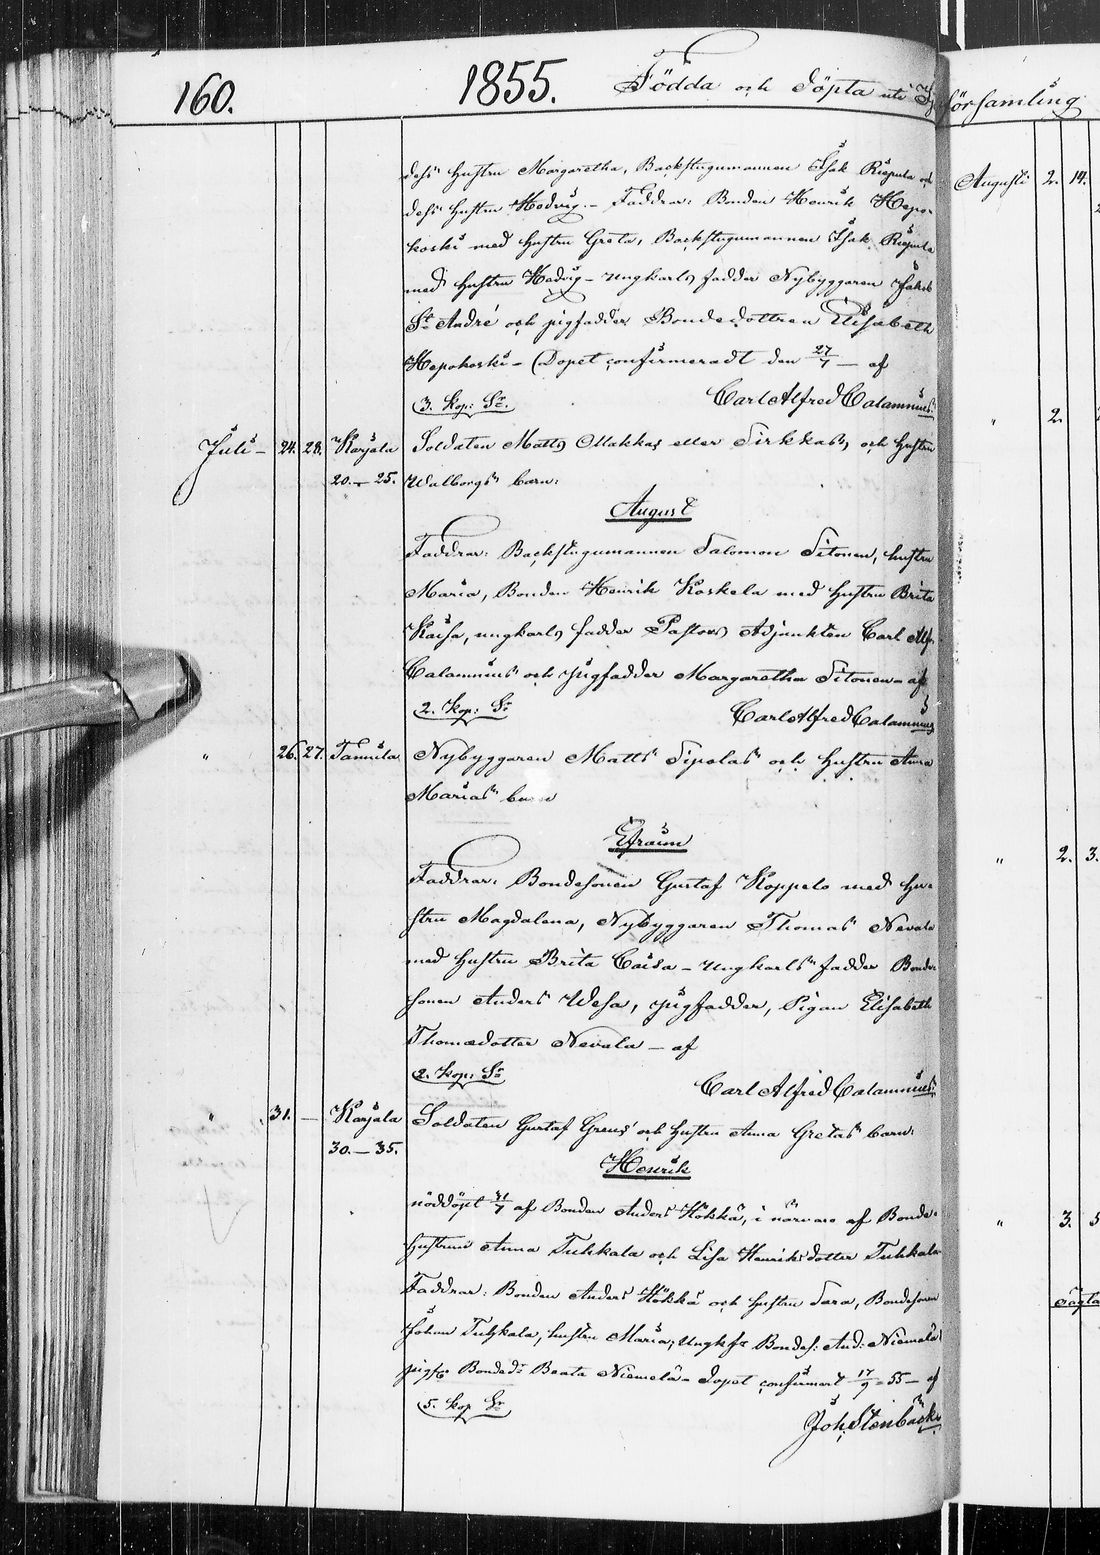 160.
1855.
Födda och Döpta uti
församling
dess hustru Margaretha, Backstugumannen Isak Riepula och
dess hustru Hedvig. – Faddrar: Bonden Henrik Hepo-
koski med hustru Greta, Backstugumannen Isak Riepula
med hustru Hedvig – ungkarls fadder Nybyggaren Jakob
St André och pigfadder Bondedottren Elisabeth
Hepokoski – (Dopet confirmeradt den 27/7 – af
3. Kop: Sr. Carl Alfred Calamnius.
Juli – 24. 28. Karjala Soldaten Matts Makkas eller Sirkkas, och hustru
20. – 25. Walborgs barn:
August
Faddrar: Backstugumannen Salomon Sitonen, hustru
Maria, Bonden Henrik Koskela med hustru Brita
Kaisa, ungkarls fadder Pastors Adjunkten Carl Alfr.
Calamnius och pigfadder Margaretha Sitonen – af
2. Kop: Sr Carl Alfred Calamnius
" 26. 27. Tannila Nybyggaren Matts Sipolas och hustru Anna
Marias barn
Efraim
Faddrar: Bondesonen Gustaf Koppelo med hu-
stru Magdalena, Nybyggaren Thomas Nevala
med hustru Brita Caisa – Ungkarls fadder Bonde-
sonen Anders Wesa, pigfadder, Pigan Elisabeth
Thomædotter Nevala – af
2. Kop: Sr
Carl Alfred Calamnius.
" 31. – Karjala Soldaten Gustaf Grens' och hustru Anna Gretas barn:
30. – 35.
Henrik
nöddöpt 31/7 af Bonden Anders Hökkä, i närvaro af Bonde-
hustrun Anna Tuhkala och Lisa Henriksdotter Tuhkala
Faddrar: Bonden Anders Hökkä och hustru Sara, Bondesonen
Johan Tuhkala, hustru Maria, Ungkfr Bondes: And: Niemelä
pigfr Bonded: Beata Niemelä – Dopet confirmert 17/9 – 55 – af
5. Kop Sr
Joh. Stenbäck
Augusti 2. 14.
" 2.
" 2. 3.
" 3. 5